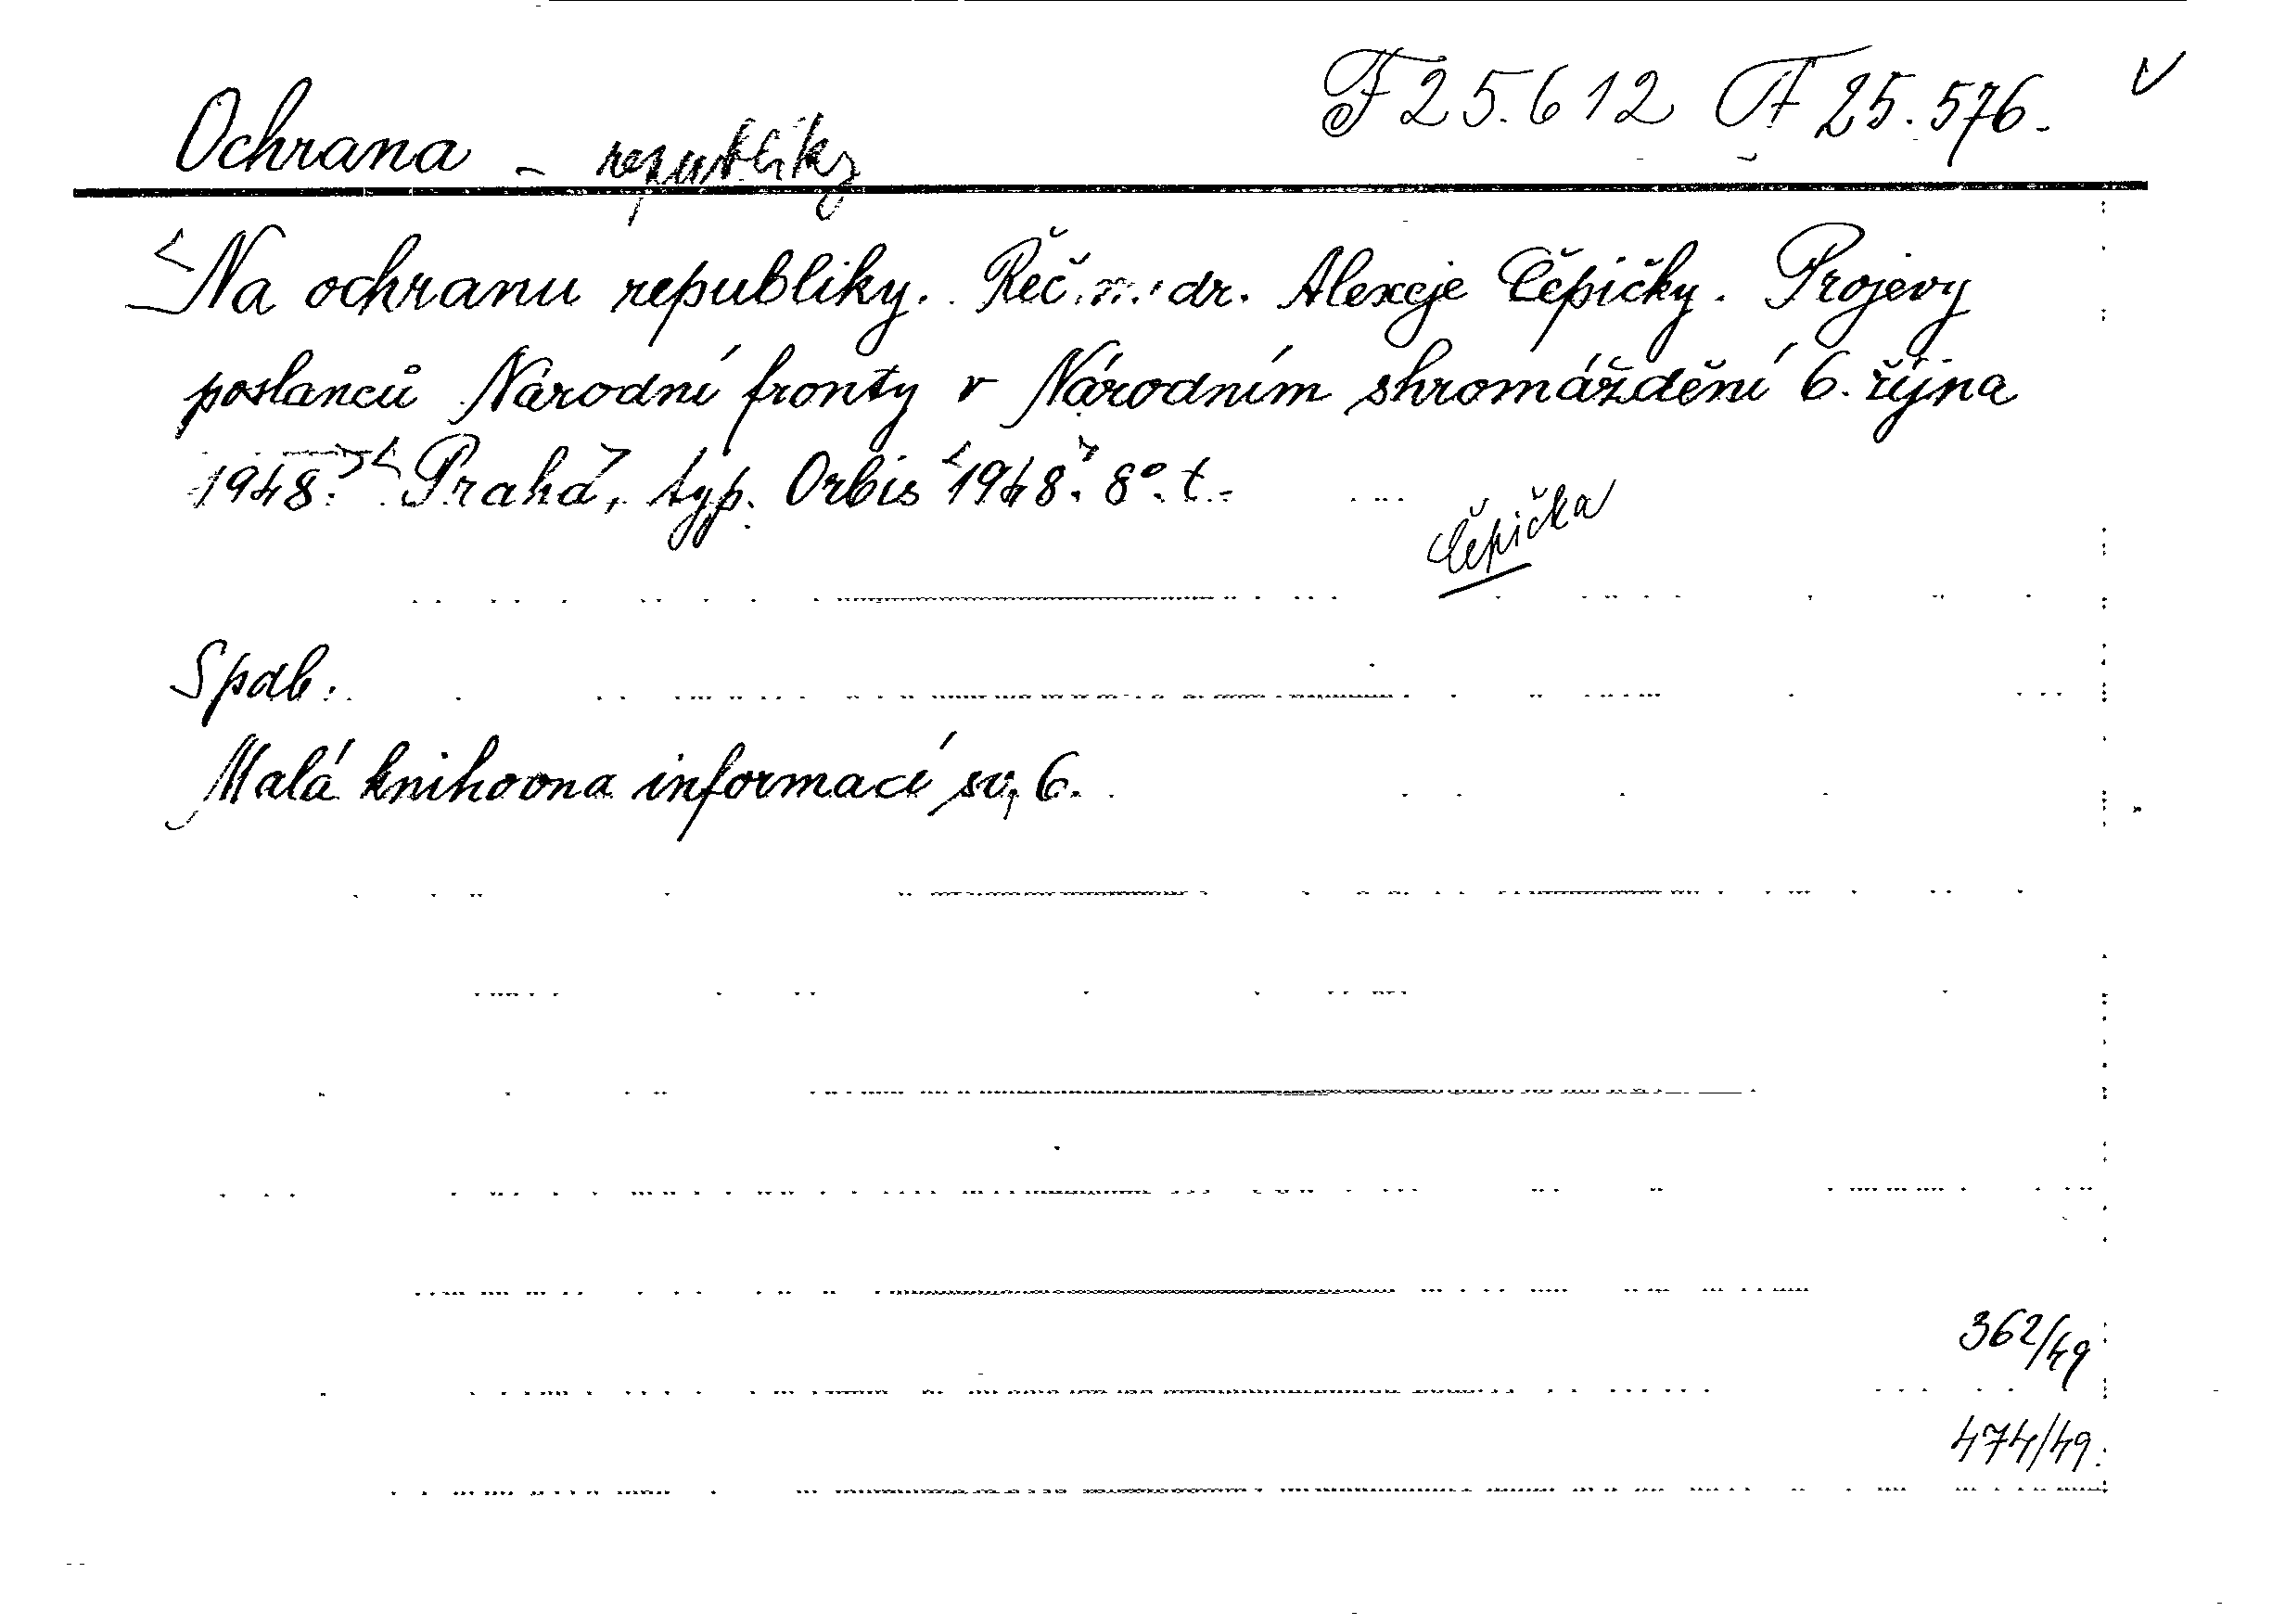 F 25.612 F 25.576. ✓
Ochrana - republiky
<Na ochranu republiky. Řeč m. dr. Alexeje Čepičky. Projevy
poslanců Národní fronty v Národním shromáždění 6. října
1948.> <Praha>, typ. Orbis <1948>. 8°. t.
Čepička
Spdb.
Malá knihovna informací sv. 6.
362/49
474/49.